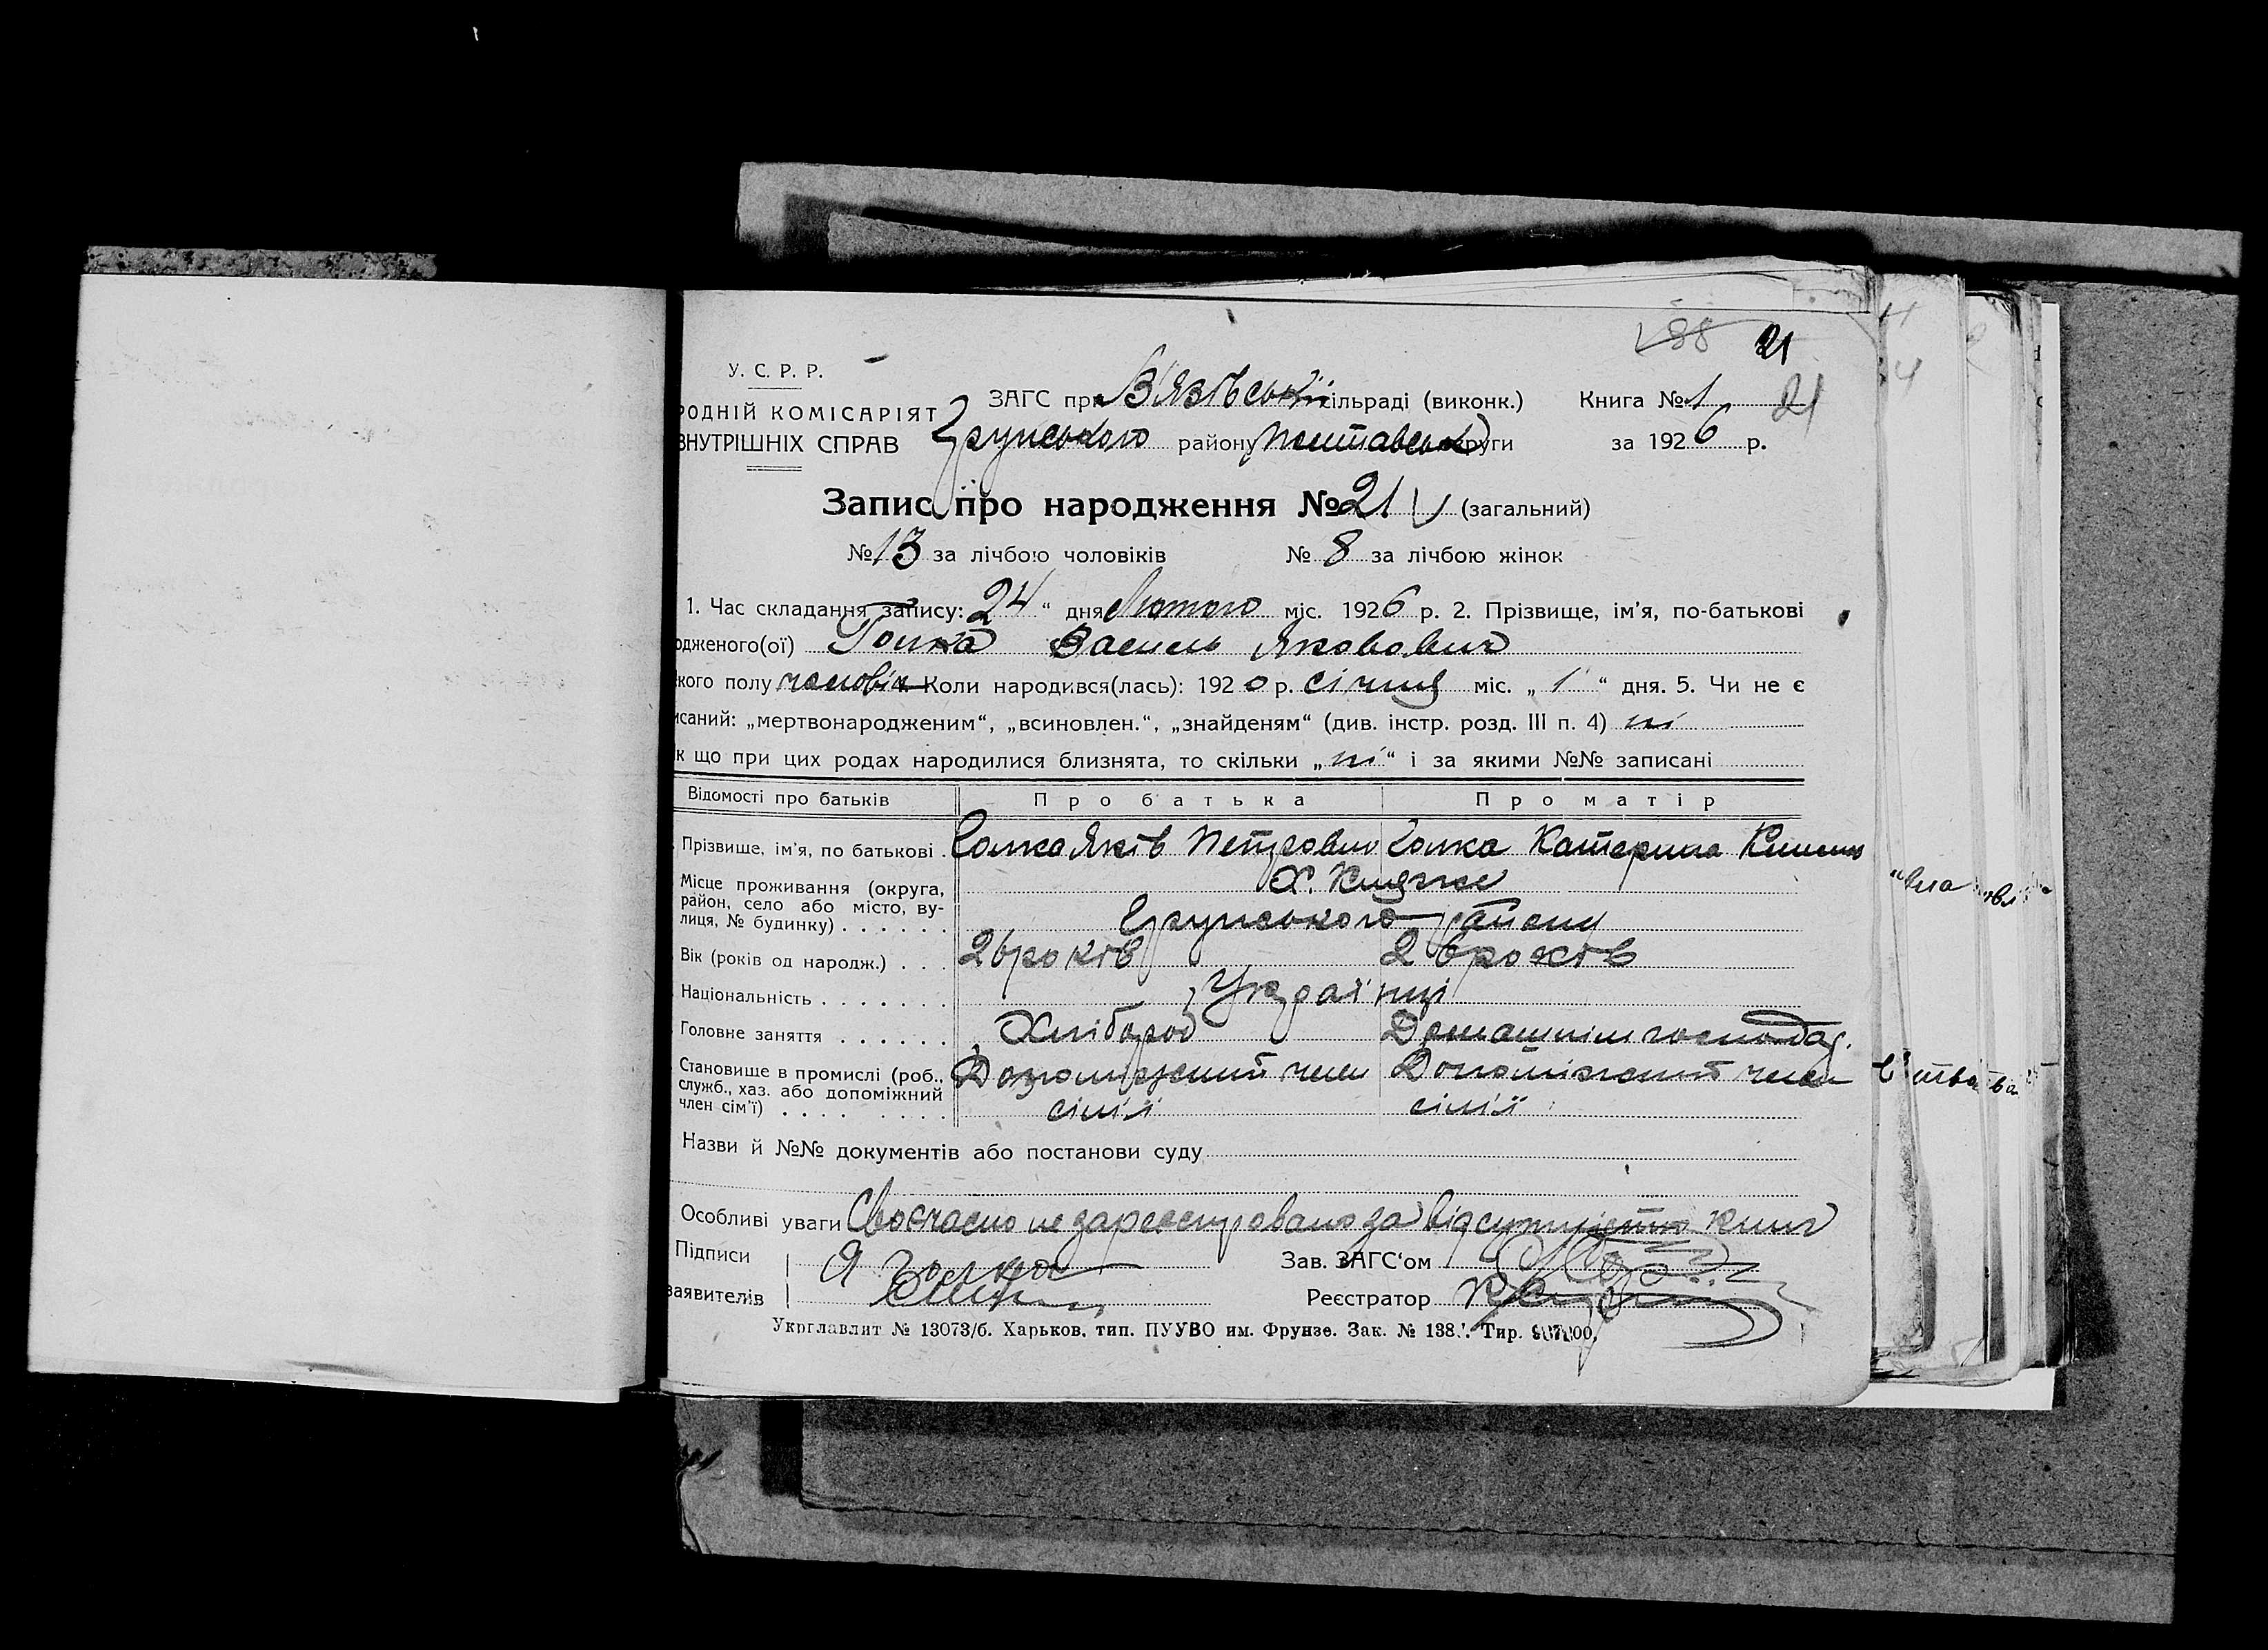 188 21
У. С. Р. Р.
РОДНІЙ КОМІСАРІЯТ
ВНУТРІШНІХ СПРАВ
ЗАГС при В'язівській сільраді (виконк.) Книга № 1 21
Грунського району Полтавської округи за 1926 р.
Запис про народження № 21 (загальний)
№ 13 за лічбою чоловіків № 8 за лічбою жінок
1. Час складання запису: 24 “ дня Лютого міс. 1926 р. 2. Прізвище, ім'я, по-батькові
одженого(ої) Голка Василь Якович
кого полу чоловіч. Коли народився(лась): 1920 р. січня міс. „ 1 “ дня. 5. Чи не є
исаний: „мертвонародженим“, „всиновлен.“, „знайденям“ (див. інстр. розд. III п. 4) ні
к що при цих родах народилися близнята, то скільки „ ні “ і за якими №№ записані
Відомості про батьків Про батька Про матір
Прізвище, ім'я, по батькові . Голка Яків Петрович Голка Катерина
Місце проживання (округа, район, село або місто, вулиця, № будинку) . . . . . . Х.
Грунського району
Вік (років од народж.) . . . 26 років 26 років
Національність . . . . . . . Українці
Головне заняття . . . . . . Хлібороб Домашнім господар.
Становище в промислі (роб., служб., хаз. або допоміжний член сім'ї) . . . . . . . . Допоміжний член Допоміжний член
сімї сімї
Назви й №№ документів або постанови суду
Особливі уваги Своєчасно не зареєстровано за відсутністю книг
Підписи Я Голка Зав. ЗАГС'ом
заявителів Реєстратор
Укрглавлит № 13073/б. Харьков, тип. ПУУВО им. Фрунзе. Зак. № 138 Тир.